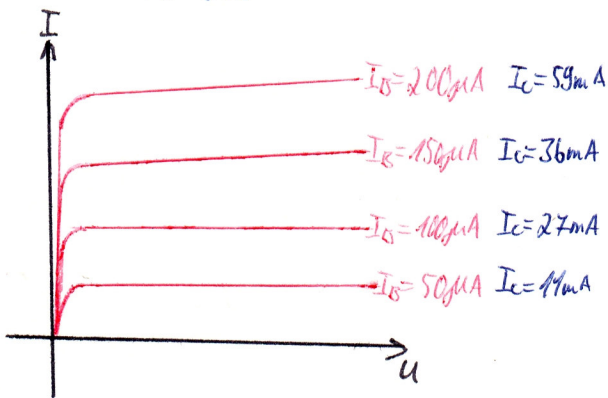 I
I_B=200µA I_C=59mA
I_B=150µA I_C=36mA
I_B=100µA I_C=27mA
I_B=50µA I_C=11mA
U